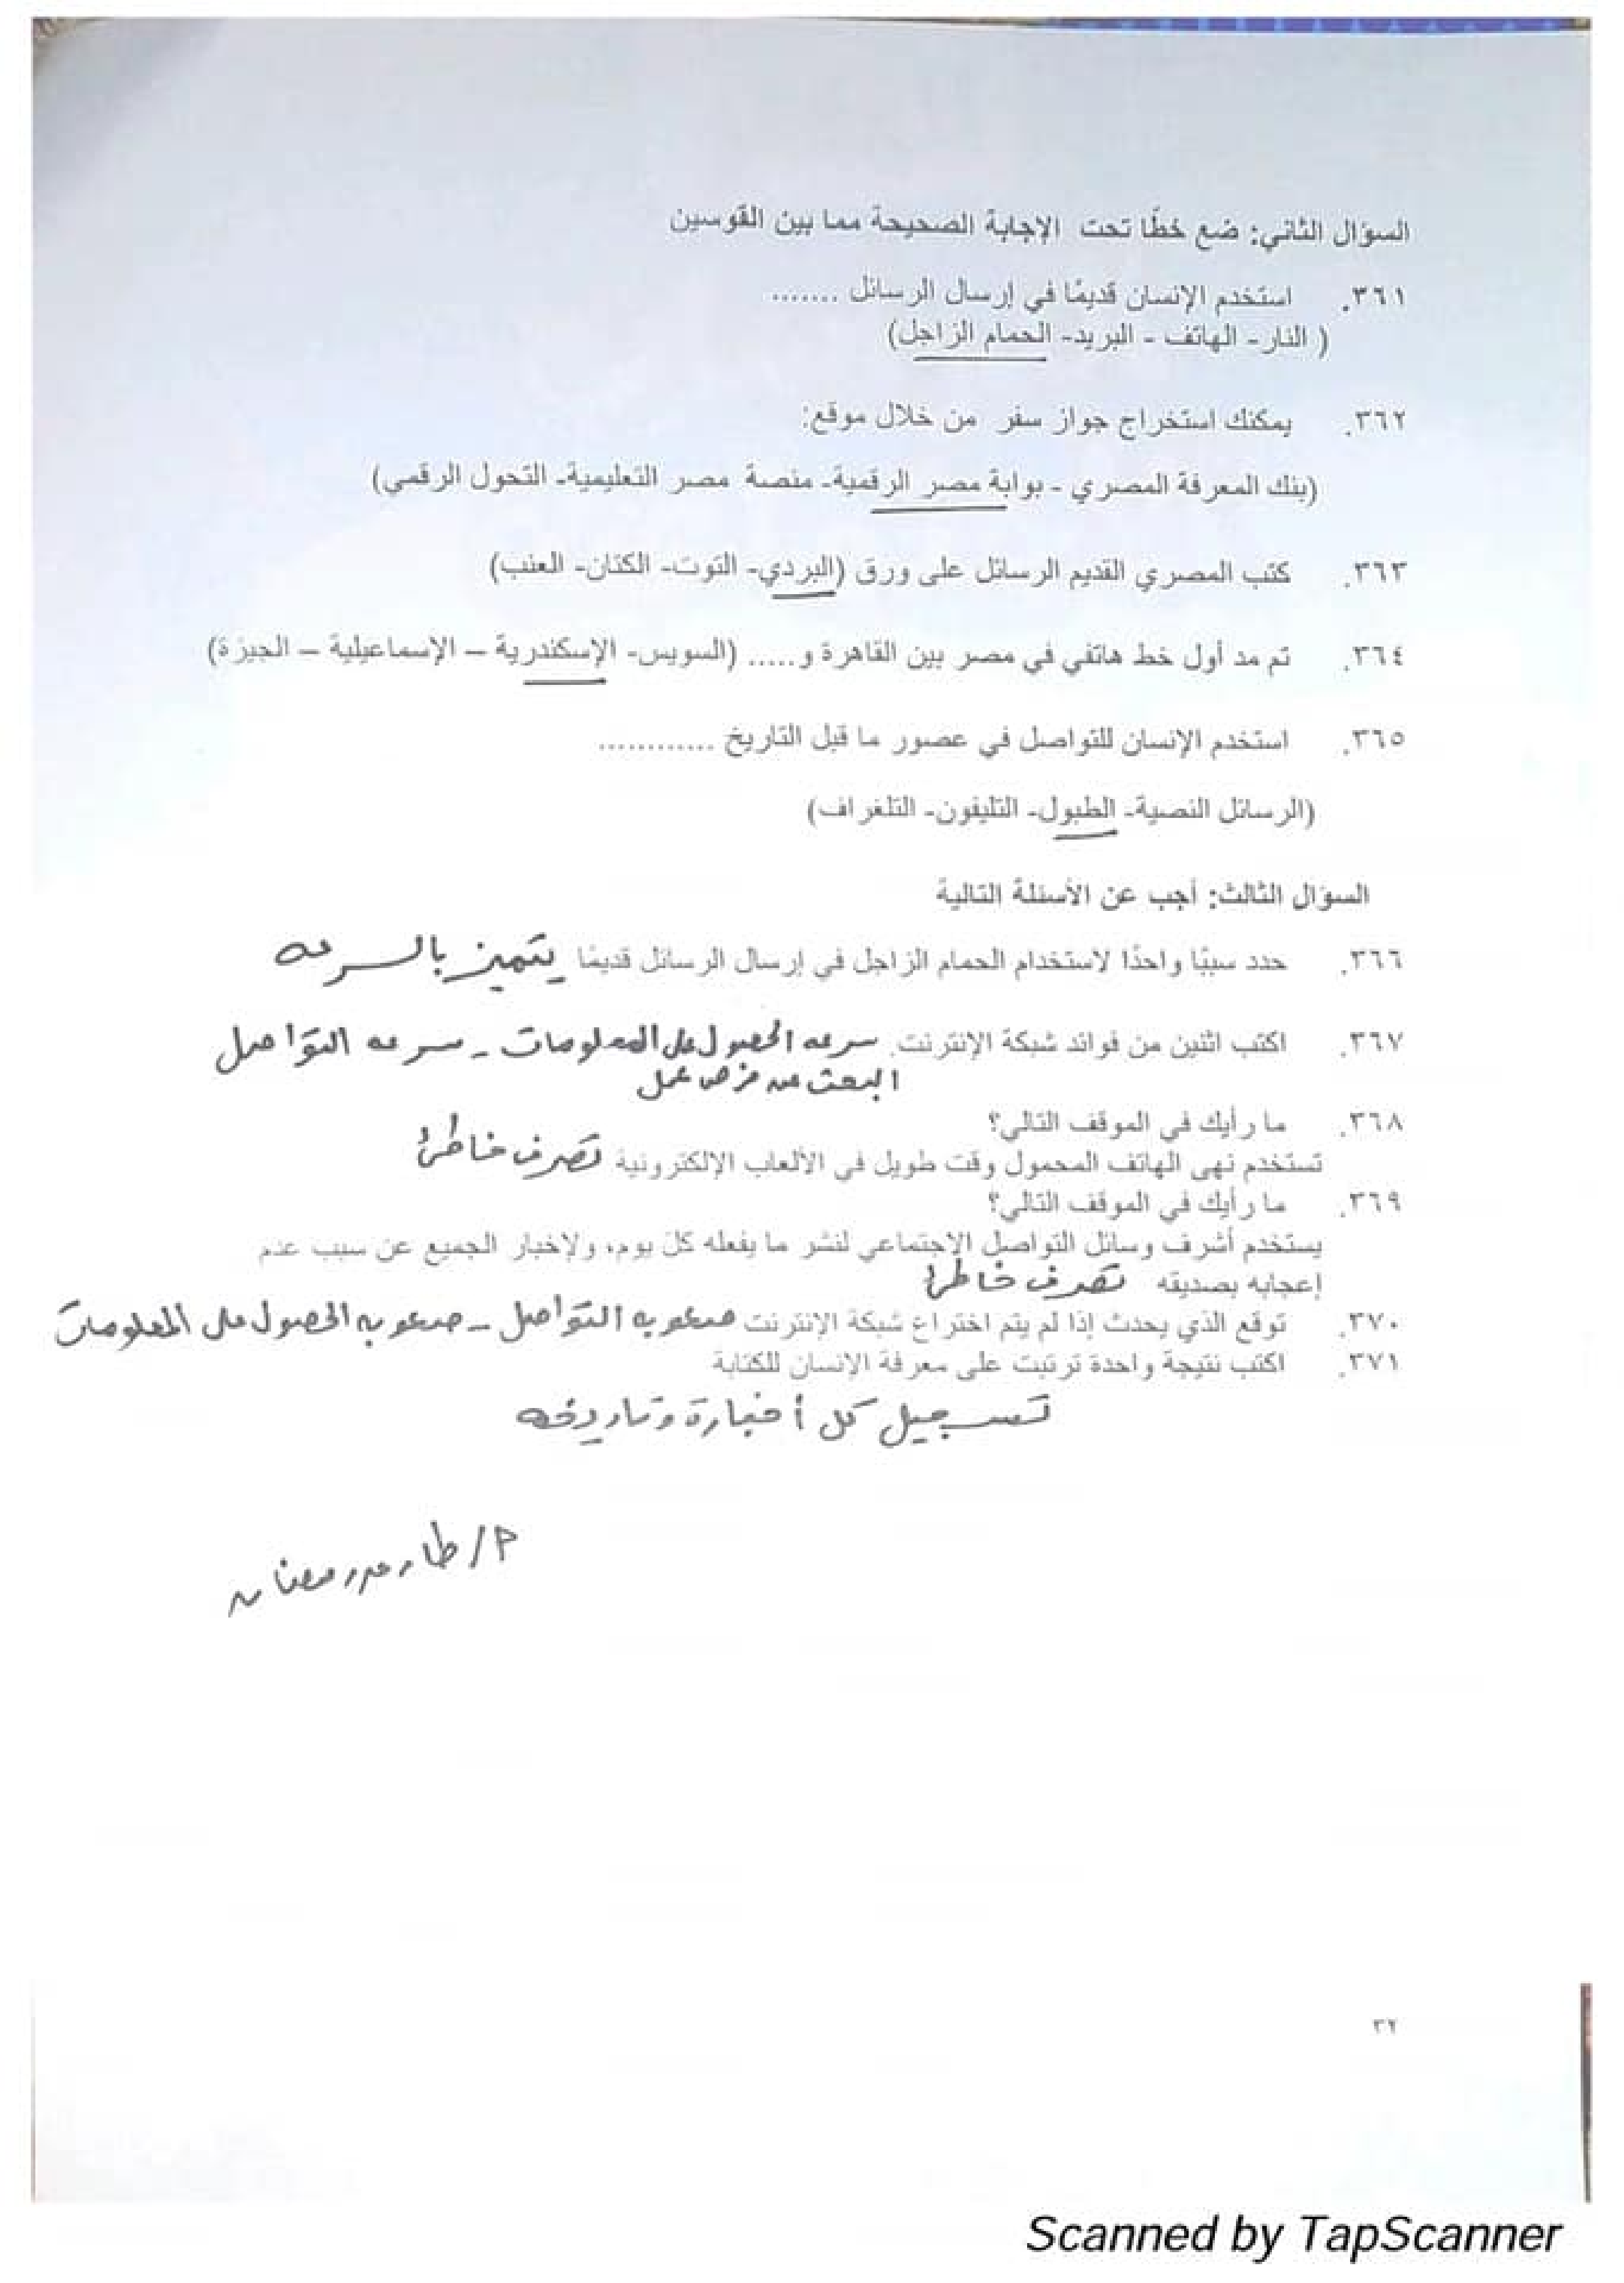 السؤال الثاني: ضع خطًا تحت الإجابة الصحيحة مما بين القوسين
٣٦١. استخدم الإنسان قديمًا في إرسال الرسائل .......
( النار- الهاتف - البريد- الحمام الزاجل)
٣٦٢. يمكنك استخراج جواز سفر من خلال موقع:
(بنك المعرفة المصري - بوابة مصر الرقمية- منصة مصر التعليمية- التحول الرقمي)
٣٦٣. كتب المصري القديم الرسائل على ورق (البردي- التوت- الكتان- العنب)
٣٦٤. تم مد أول خط هاتفي في مصر بين القاهرة و..... (السويس- الإسكندرية – الإسماعيلية – الجيزة)
٣٦٥. استخدم الإنسان للتواصل في عصور ما قبل التاريخ ............
(الرسائل النصية- الطبول- التليفون- التلغراف)
السؤال الثالث: أجب عن الأسئلة التالية
٣٦٦. حدد سببًا واحدًا لاستخدام الحمام الزاجل في إرسال الرسائل قديمًا يتميز بالسرعه
٣٦٧. اكتب اثنين من فوائد شبكة الإنترنت. سرعه الحصول على المعلومات - سرعه التواصل
البحث عن فرص عمل
٣٦٨. ما رأيك في الموقف التالي؟
تستخدم نهى الهاتف المحمول وقت طويل في الألعاب الإلكترونية تصرف خاطئ
٣٦٩. ما رأيك في الموقف التالي؟
يستخدم أشرف وسائل التواصل الاجتماعي لنشر ما يفعله كل يوم، ولإخبار الجميع عن سبب عدم
إعجابه بصديقه تصرف خاطئ
٣٧٠. توقع الذي يحدث إذا لم يتم اختراع شبكة الإنترنت صعوبه التواصل - صعوبه الحصول على المعلومات
٣٧١. اكتب نتيجة واحدة ترتبت على معرفة الإنسان للكتابة
تسجيل كل أخبارة وتاريخه
رمضان
٣٢
Scanned by TapScanner